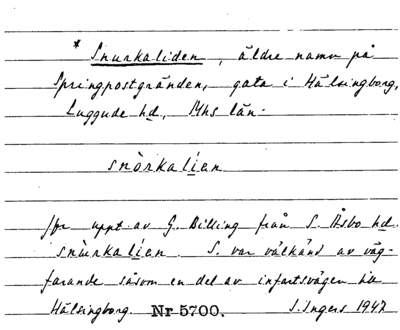 * Snurkaliden, äldre namn på
Springpostgränden, gata i Hälsingborg,
Luggude hd, Mhs län.
snòrkalían
Jfr uppt. av G. Billing från S. Åsbo hd.
snùrkalían. S. var välkänd av väg-
farande såsom en del av infartsvägen till
Hälsingborg. Nr 5700. S. Ingers 1947